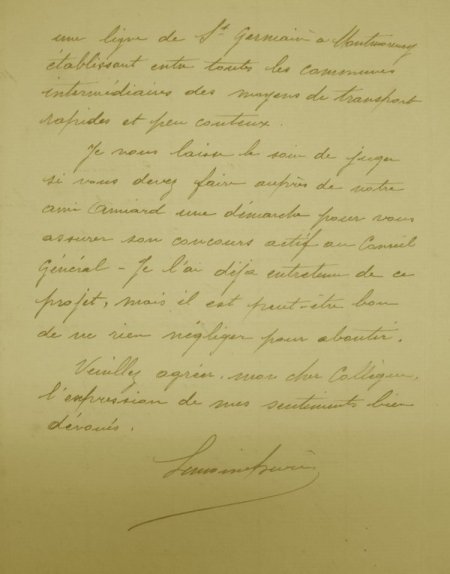 une ligne de St Germain à Montmorency
établissant entre toutes les communes
intermédiaires des moyens de transport
rapides et peu couteux.
Je vous laisse le soin de juger
si vous devez faire auprès de notre
ami Camiard une démarche pour vous
assurer son concours actif au Conseil
Général - Je l'ai déja entretenu de ce
projet, mais il est peut-être bon
de ne rien négliger pour aboutir.
Veuillez agréer, mon cher Collègue,
l'expression de mes sentiments bien
dévoués.